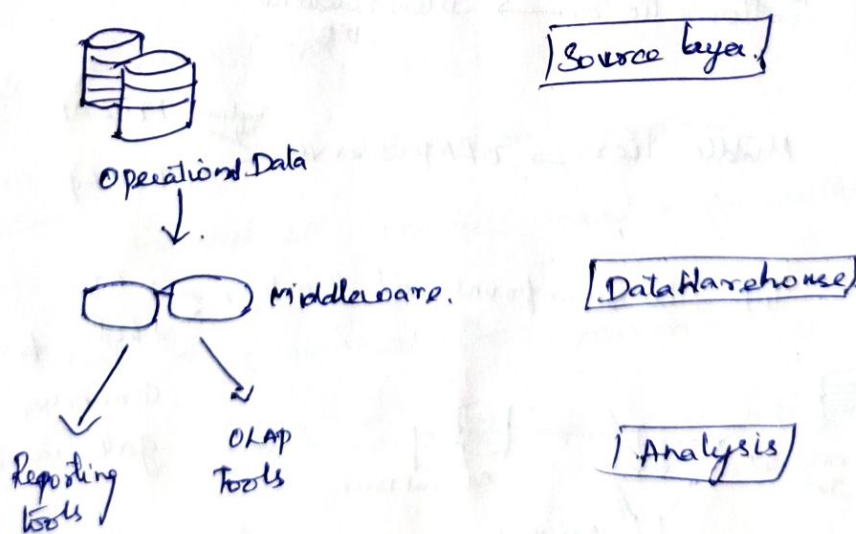 Source layer.
Operational Data
Middleware.
DataWarehouse
Reporting
tools
OLAP
Tools
Analysis